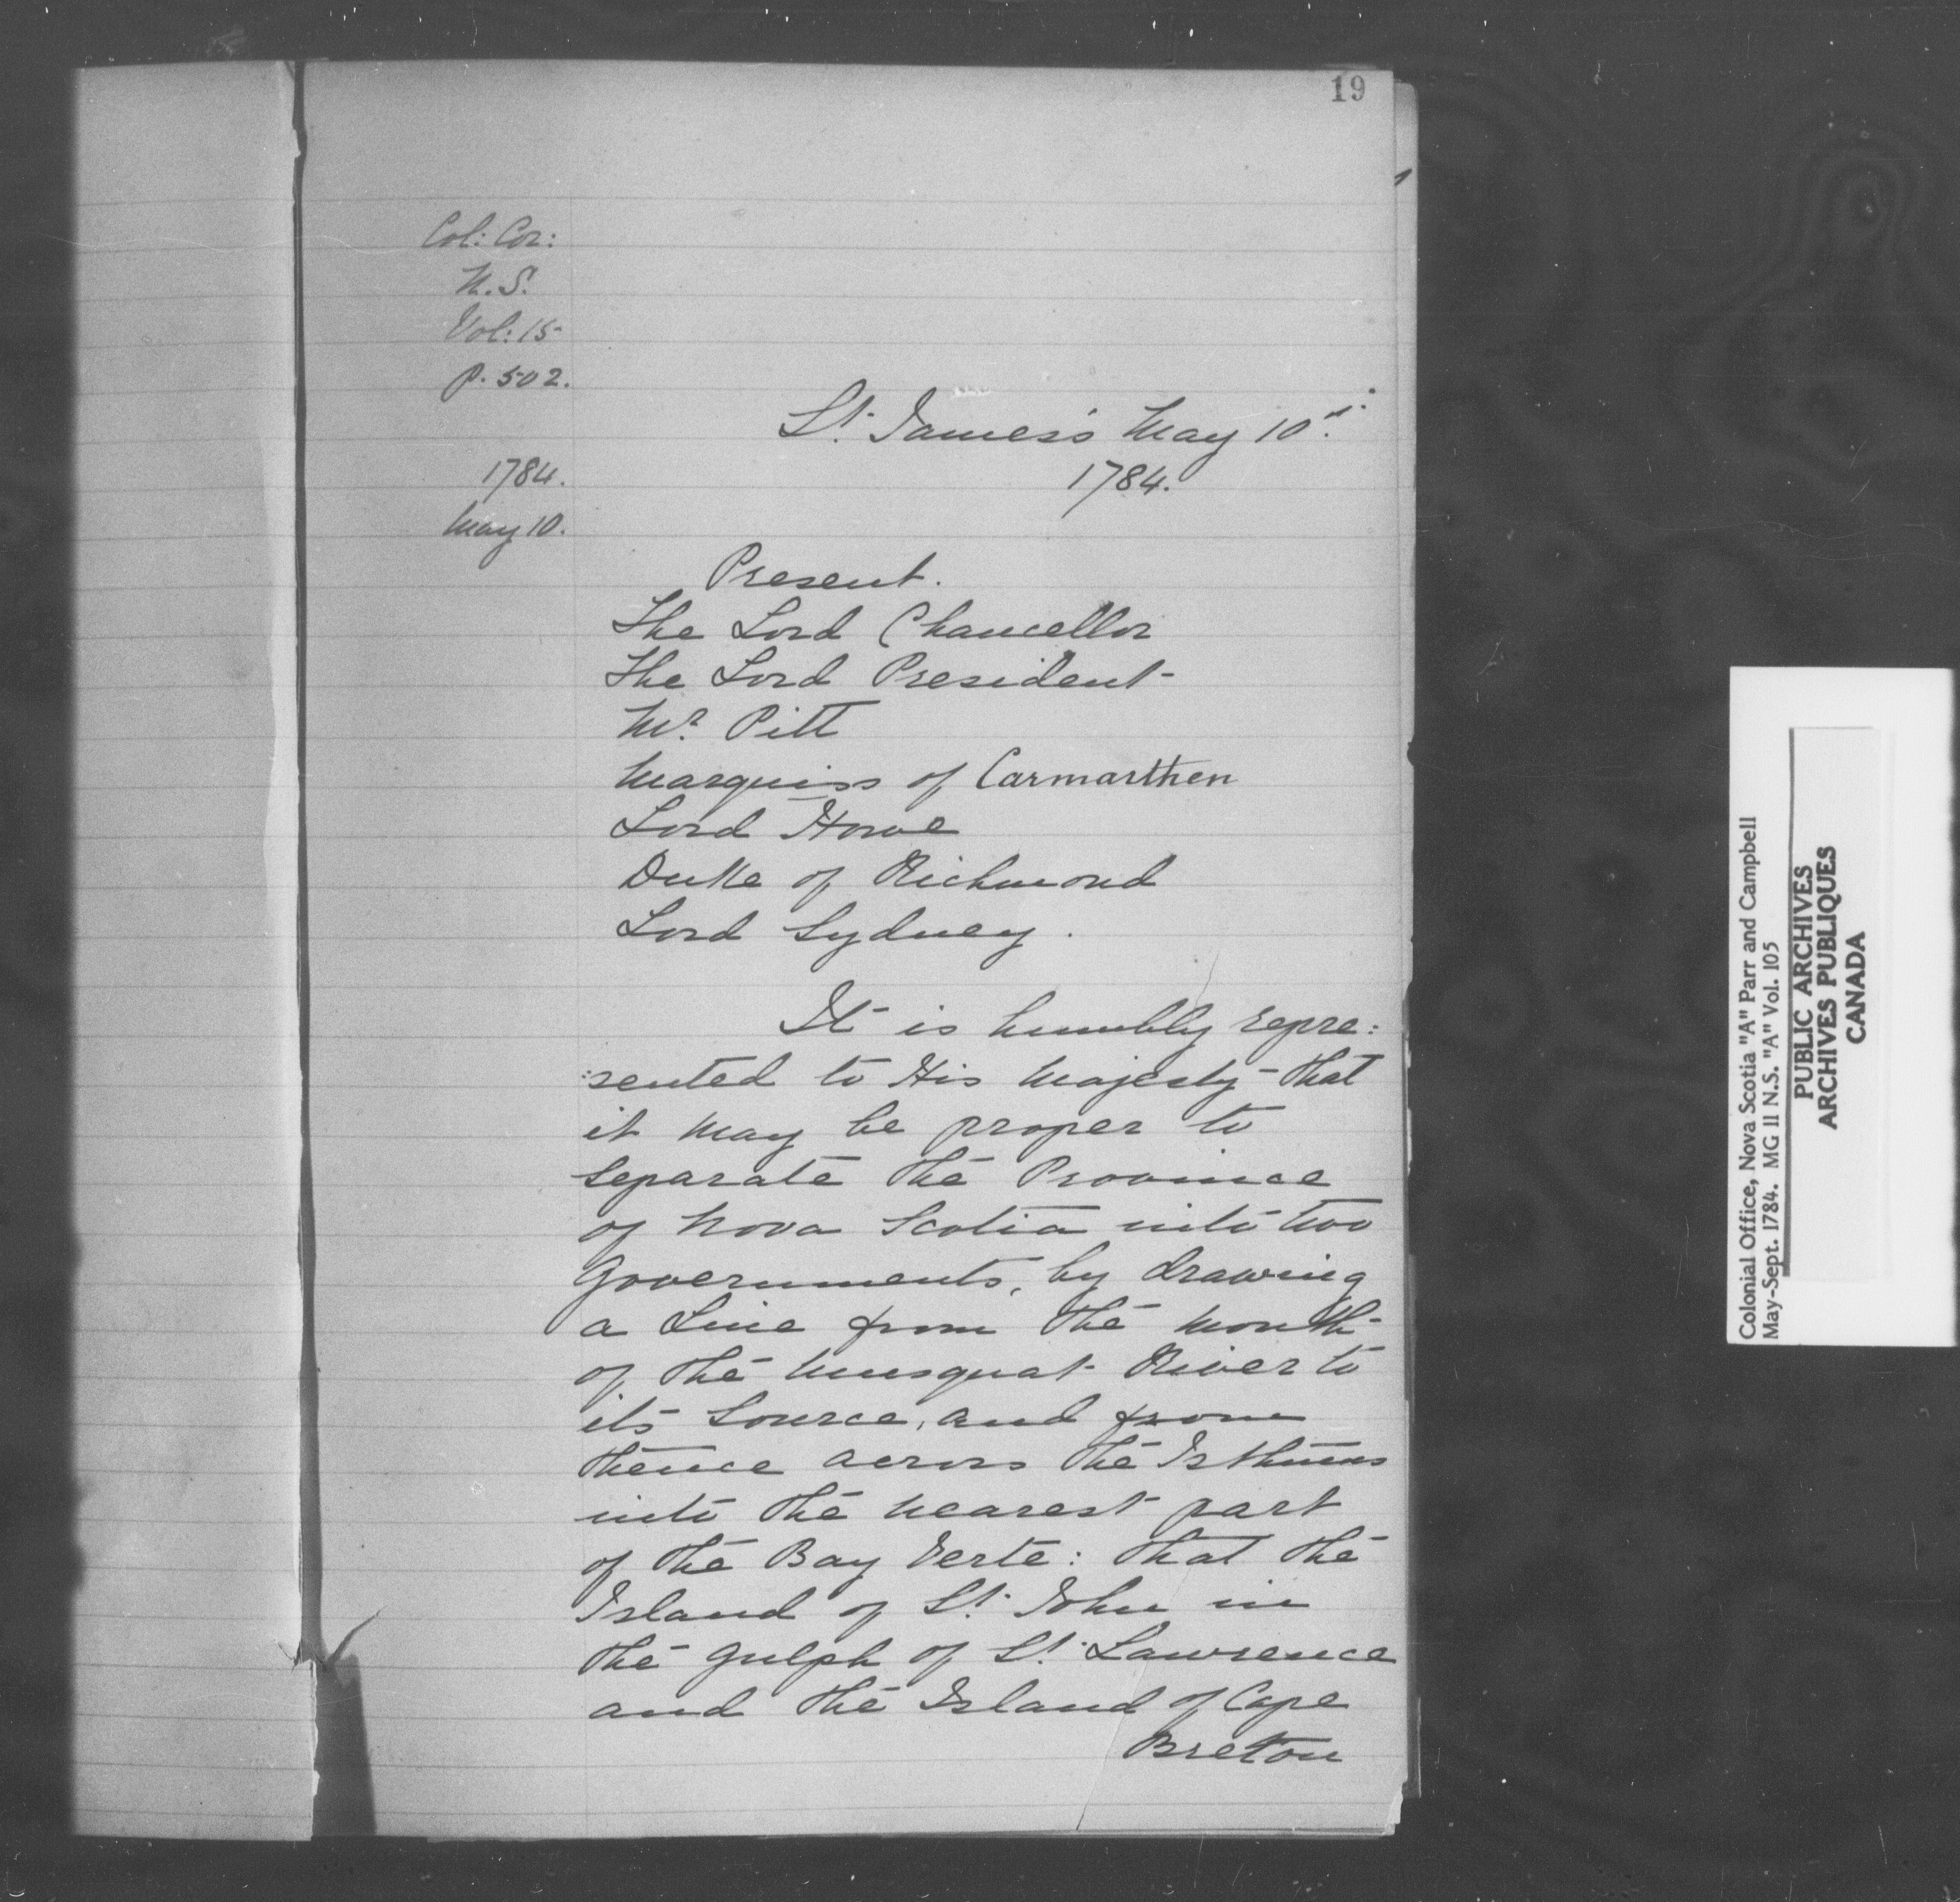 19
Col: Cor:
N.S.
Vol: 15
P. 502.
St. James's May 10th.
1784.
1784.
May 10.
Present.
The Lord Chancellor
The Lord President
Mr. Pitt
Marquiss of Carmarthen
Lord Howe
Duke of Richmond
Lord Sydney.
It is humbly repre:
:sented to His Majesty that
it may be proper to
separate the Province
of Nova Scotia into two
Governments, by drawing
a Line from the mouth
of the Musquat River to
its Source, and from
thence across the Isthmus
into the nearest part
of the Bay Verte: that the
Island of St. John in
the Gulph of St. Lawrence
and the Island of Cape
Breton
Colonial Office, Nova Scotia "A" Parr and Campbell
May-Sept. 1784. MG 11 N.S. "A" Vol. 105
PUBLIC ARCHIVES
ARCHIVES PUBLIQUES
CANADA